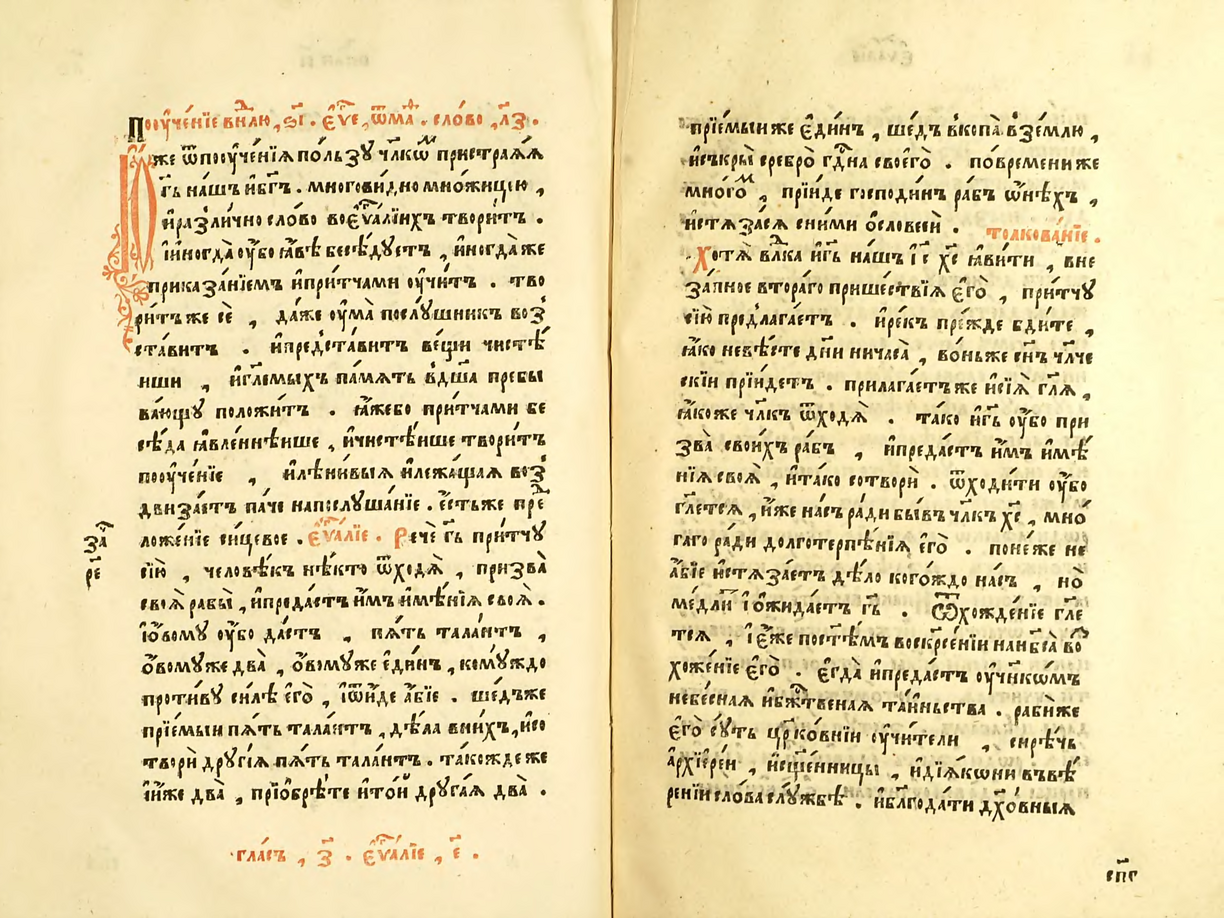 Пооуче́нїе внⷣлю , ѕ҃і . є҆ѵⷢ҇е , ѿ маⷴ . сло́во , л҃з .
И҆же ѿ пооуче́нїѧ по́льзꙋ чл҃кѡⷨ пристраѧ́ѧ
гь҃ на́шъ и҆ бг҃ъ . многови́дно мно́жицїю ,
и҆ разли́чно сло́во во є҆ѵⷢ҇а́лїихъ твори́тъ .
и҆ и҆ногда̀ оу҆́бо ꙗ҆́вѣ бесѣ́дꙋетъ , и҆ногда́ же
прикаꙁа́нїемъ и҆ при́тчами оу҆чи́тъ . тво
ри́тъ же сѐ , да́же оу҆ма̀ послꙋ́шникъ воꙁ
ста́витъ . и҆ предста́витъ ве́щи чистѣ́
иши , и҆ гл҃емыхъ па́мѧть в дш҃а пребы
ва́ющꙋ положи́тъ . ꙗ҆́же бо при́тчами бе
сѣ́да ꙗ҆вле́ннѣише , и҆ чистѣ́ише твори́тъ
пооуче́нїе , и҆ лѣни́выѧ и҆ лежа́щаѧ воꙁ
двиза́етъ па́че на послꙋ́шанїе . є҆́сть же преⷣ
ложе́нїе си́цевое . є҆ѵⷢ҇а́лїе . Речѐ гь҃ при́тчꙋ
сїю̀ , человѣ́къ нѣ́кто ѿходѧ̀ , призва̀
своѧ̀ рабы̀ , и҆ преда́стъ и҆̀мъ и҆мѣ́нїѧ своѧ̀ .
і҆ о҆́вомꙋ оу҆́бо да́стъ , пѧ́ть тала́нтъ ,
о҆́вомꙋ же два̀ , о҆́вомꙋ же є҆ди́нъ , комꙋ́ждо
проти́вꙋ си́лѣ є҆го̀ , і҆ ѿи́де а҆́бїе . ше́дъ же
прїе́мыи пѧ́ть тала́нтъ , дѣ́ла в ни́хъ , и҆ со
творѝ дрꙋгі́ѧ пѧ́ть тала́нтъ . та́кожде же
и҆ и҆́же два̀ , прїобрѣ́те и҆ то́й дрꙋга́ѧ два̀ .
за҇ⷱ
р҃е
гла́съ , з҃ . є҆ѵⷢ҇а́лїе , є҃ .
прїе́мыи же є҆ди́нъ , ше́дъ вкопа̀ в зе́млю ,
и҆ скры̀ сребро̀ гд҇на своего̀ . по времени же
мно́гоⷨ , прїи́де господи́нъ ра́бъ ѻ҆́нѣхъ ,
и҆стѧза́сѧ сни́ми о҆ словесѝ . толкова́нїе .
Хотѧ̀ влⷣка и҆ гь҃ на́шъ і҆с҃ хс҃ ꙗ҆ви́ти , вне
за́пное втора́го прише́ствїѧ є҆го̀ , при́тчꙋ
сїю̀ предлага́етъ . и҆ ре́къ пре́жде бди́те ,
ꙗ҆́ко невѣ́сте днѝ ни часа̀ , во́ньже сн҃ъ чл҃че
скїи прїи́детъ . прилага́етъ же и҆ сїѧ̀ гл҃ѧ ,
ꙗ҆́коже чл҃къ ѿходѧ̀ . та́ко и҆ гь҃ оу҆́бо при
зва̀ свои́хъ ра́бъ , и҆ преда́стъ и҆̀мъ и҆мѣ́
нїѧ своѧ̀ , и҆ та́ко сотворѝ . ѿходи́ти оу҆́бо
гл҃етсѧ , и҆́же на́съ ра́ди бы́въ чл҃къ хс҃ , мно́
гаго ра́ди долготерпѣ́нїѧ є҆го̀ . поне́же не
а҆́бїе и҆стѧза́етъ дѣ́ло кого́ждо на́съ , но̀
ме́длѧ і҆ о҆жида́етъ гь҃ . Ѿхожде́нїе гл҃е
тсѧ , і҆ є҆́же по сте́мъ воскресе́нїи на нб҃са̀ воⷭ҇
хоже́нїе є҆го̀ . є҆гда̀ и҆ преда́стъ оу҆чн҃кѡ́мъ
небе́снаѧ и҆ бжⷭ҇твенаѧ та́иньства . раби́ же
є҆го̀ сꙋ́ть црⷪ҇ко́внїи оу҆чи́тели , си́рѣчь
а҆рхїере́и , и҆ сщ҃е́нницы , и҆ дїѧ́кѡни въ вѣ́
ренїи сло́ва слꙋ́жбѣ . и҆ бл҃года́ти дх҃о́вныѧ
сп҃г